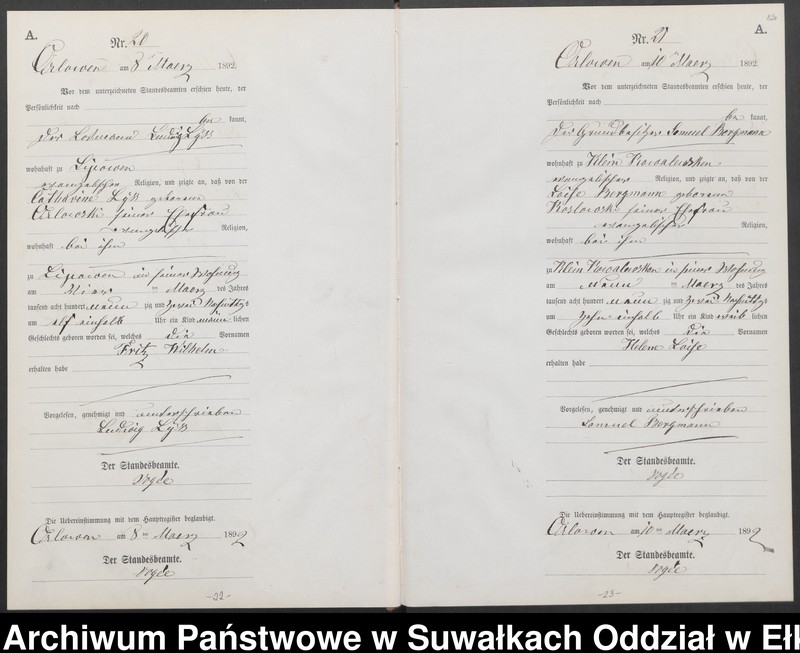 A.
Nr. 20
Orlowen am 8 ten Maerz 1892.
Vor dem unterzeichneten Standesbeamten erschien heute, der
Persönlichkeit nach
be kannt,
der Losmann Ludwig Lyß
wohnhaft zu Lipowen
evangelischer Religion, und zeigte an, daß von der
Catharine Lyß geborenen
Orlowski seiner Ehefrau
evangelischer Religion,
wohnhaft bei ihm
zu Lipowen in seiner Wohnung
am ten Maerz des Jahres
tausend acht hundert neun zig und zwei Nachmittags
um elf einhalb Uhr ein Kind männ lichen
Geschlechts geboren worden sei, welches die Vornamen
Fritz Wilhelm
erhalten habe
Vorgelesen, genehmigt und unterschrieben
Ludwig Lyß
Der Standesbeamte.
Vogde
Die Uebereinstimmung mit dem Hauptregister beglaubigt.
Orlowen am 8 ten Maerz 1892
Der Standesbeamte.
Vogde
-22-
A.
Nr. 21
Orlowen am 10 ten Maerz 1892
Vor dem unterzeichneten Standesbeamten erschien heute, der
Persönlichkeit nach
be kannt,
der Grundbesitzer Samuel Bergmann
wohnhaft zu Klein Kowalewsken
evangelischer Religion, und zeigte an, daß von der
Loise Bergmann geborenen
Koslowski seiner Ehefrau
evangelischer Religion,
wohnhaft bei ihm
zu Klein Kowalewsken in seiner Wohnung
am neun ten Maerz des Jahres
tausend acht hundert neun zig und zwei Nachmittags
um zehn einhalb Uhr ein Kind weib lichen
Geschlechts geboren worden sei, welches die Vornamen
Helene Loise
erhalten habe
Vorgelesen, genehmigt und unterschrieben
Samuel Bergmann
Der Standesbeamte.
Vogde
Die Uebereinstimmung mit dem Hauptregister beglaubigt.
Orlowen am 10 ten Maerz 1892
Der Standesbeamte.
Vogde
-23-
Archiwum Państwowe w Suwałkach Oddział w Ełk